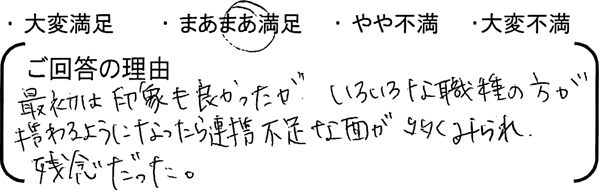 ・大変満足 ・まあまあ満足 ・やや不満 ・大変不満
ご回答の理由
最初は印象も良かったが、いろいろな職種の方が
携わるようになったら連携不足な面が多くみられ、
残念だった。